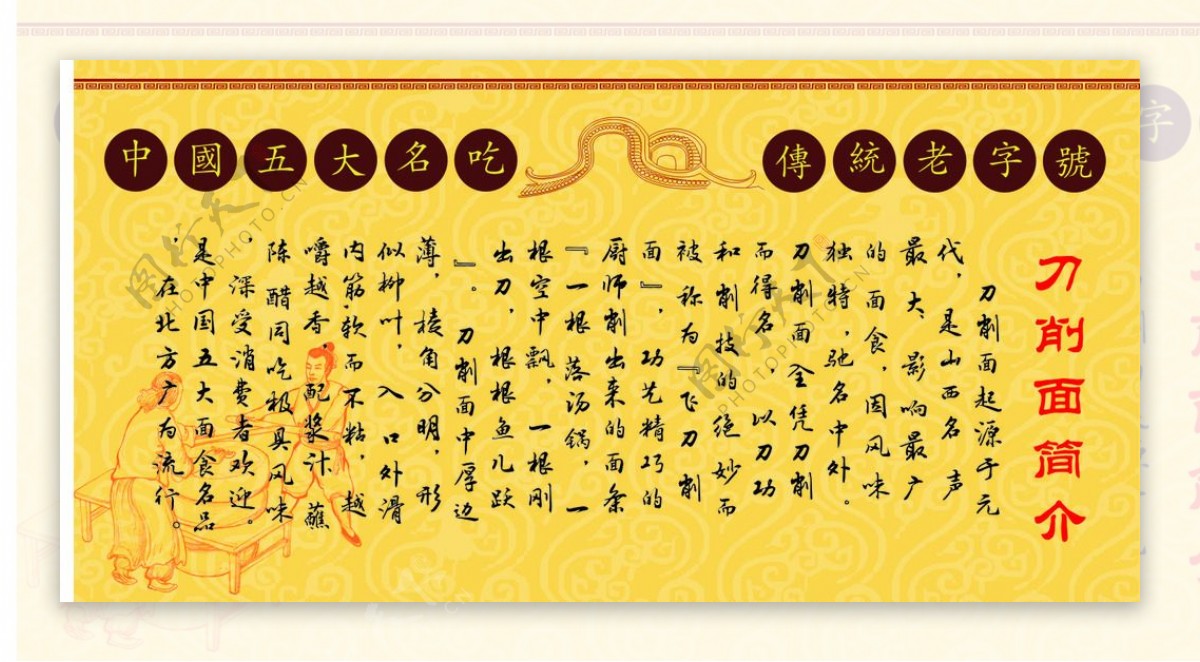 中國五大名吃
傳統老字號
刀削面简介
刀削面起源于元
代,是山西名声
最大、影响最广
的面食,因风味
独特,驰名中外。
刀削面全凭刀削
而得名,以刀功
和削技的绝妙而
被称为『飞刀削
面』,功艺精巧的
厨师削出来的面条
『一根落汤锅,一
根空中飘,一根刚
出刀,根根鱼儿跃
』。刀削面中厚边
薄,棱角分明,形
似柳叶,入口外滑
内筋,软而不粘,越
嚼越香,配浆汁,蘸
陈醋同吃极具风味
,深受消费者欢迎。
是中国五大面食名品
,在北方广为流行。
图行天下
PHOTO.CN
图行天下
PHOTO.CN